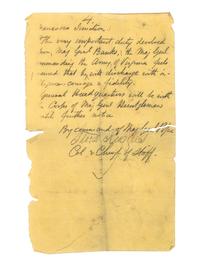 4.
Manassas Junction
The very important duty devolved
upon Maj Genl Banks, the Maj Genl
commanding the Army of Virginia feels
assured that he will discharge with in-
telligence courage & fidelity.
General Headquarters will be with
Corps of Maj Genl Heintzelman
until further notice
By command of Maj Genl Pope
Col & Chief of Staff.